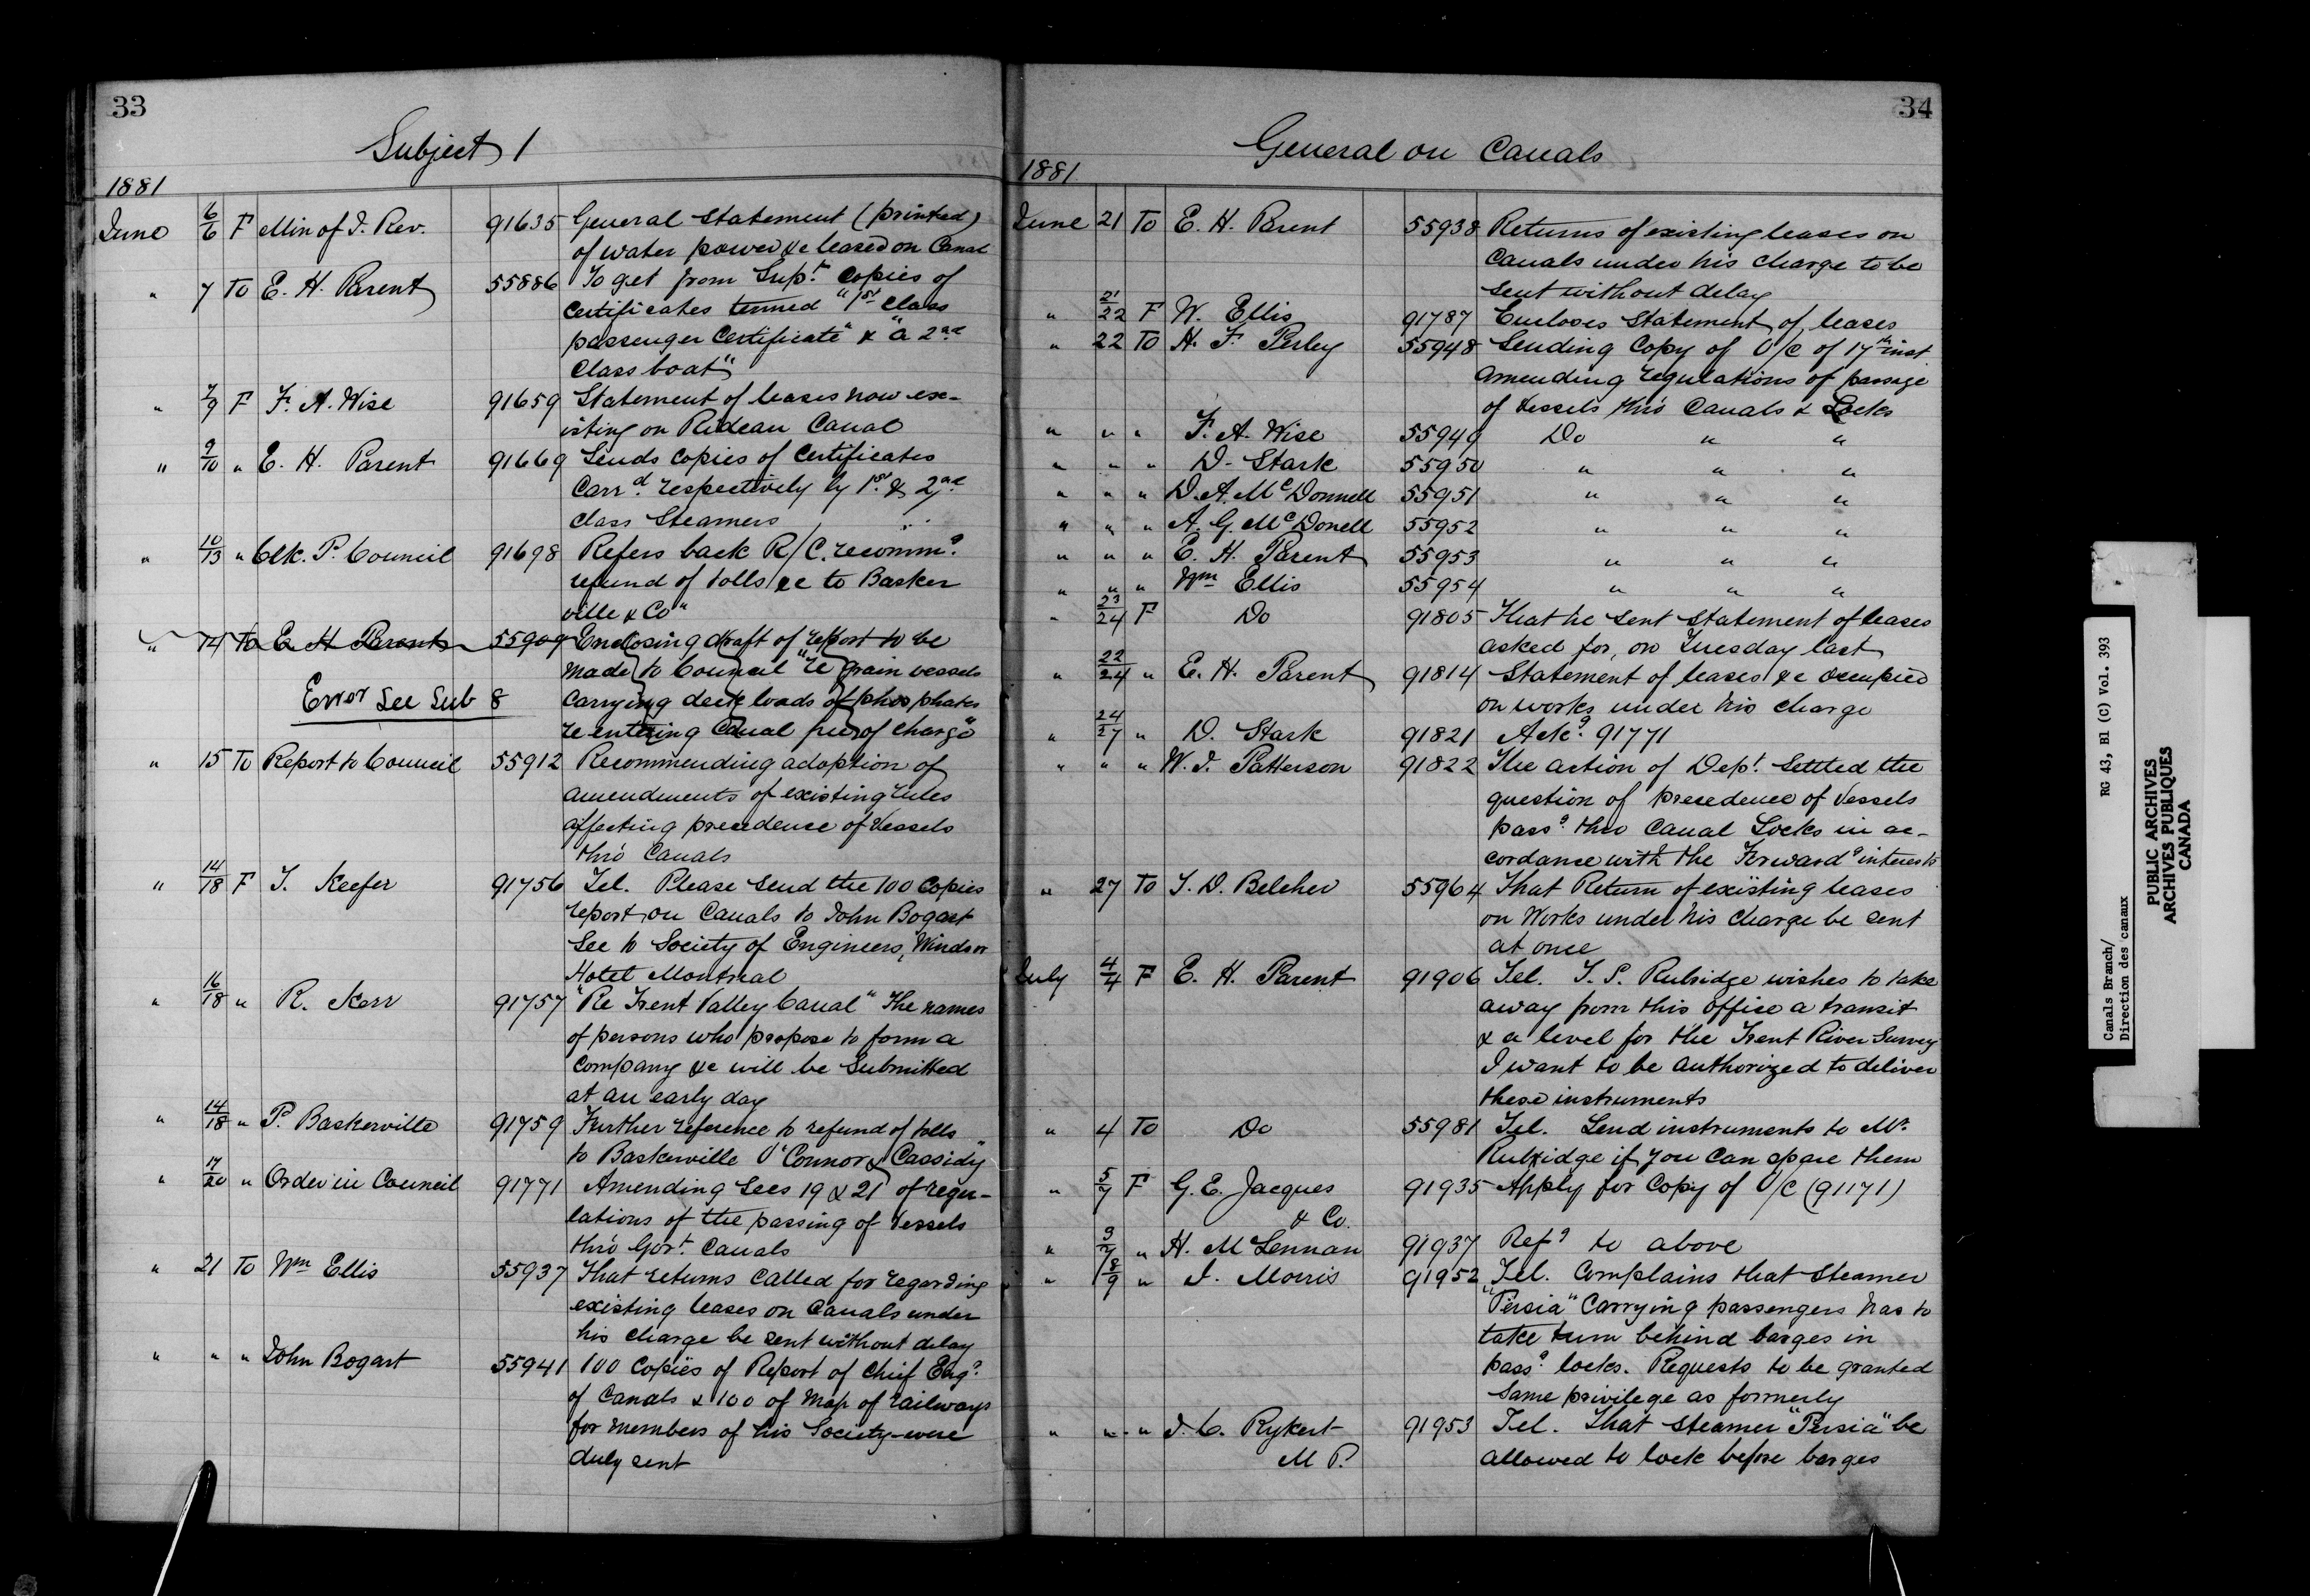 33
Subject 1
1881
June 6/6 F Min of I. Rev. 91635 General Statement (printed)
of water power &c leased on Canal
" 7 To E. H. Parent 55886 To get from Supt. Copies of
Certificates termed "1st Class
passenger Certificate" & "a 2nd
Class boat"
" 7/9 F F. A. Wise 91659 Statement of leases now ex-
isting on Rideau Canal
" 9/10 " E. H. Parent 91669 Sends copies of Certificates
Carrd. respectively by 1st & 2nd
Class Steamers
" 10/13 " Clk. P. Council 91698 Refers back R/C. recommg.
refund of tolls &c to Basker
ville & Co"
" 14 To E H Parent 55909 Enclosing draft of report to be
made to Council "re grain vessels
Carrying deck loads of phosphates
re entering Canal free of charge"
Error See Sub 8
" 15 To Report to Council 55912 Recommending adoption of
amendments of existing rules
affecting precedence of Vessels
thro' Canals
" 14/18 F T. Keefer 91756 Tel. Please send the 100 Copies
report on Canals to John Bogart
Sec to Society of Engineers, Windsor
Hotel Montreal
" 16/18 " R. Kerr 91757 "Re Trent Valley Canal" The names
of persons who propose to form a
Company &c will be Submitted
at an early day
" 14/18 " P. Baskerville 91759 Further reference to refund of tolls
to Baskerville O'Connor & Cassidy"
" 17/20 " Order in Council 91771 Amending Secs 19 & 21 of regu-
lations of the passing of Vessels
thro' Govt. Canals
" 21 To Wm Ellis 55937 That returns called for regarding
existing leases on Canals under
his charge be sent without delay
" " " John Bogart 55941 100 Copies of Report of Chief Engr.
of Canals & 100 of Map of railways
for members of his Society were
duly sent
34
General on Canals
1881
June 21 To E. H. Parent 55938 Returns of existing leases on
Canals under his charge to be
sent without delay
" 21/22 F W. Ellis 91787 Encloses Statement of leases
" 22 To H. F. Perley 55948 Sending Copy of O/C of 17th inst
amending regulations of passage
of Vessels thro' Canals & Locks
" " " F. A. Wise 55949 Do " "
" " " D. Stark 55950 " " "
" " " D. A. McDonnell 55951 " " "
" " " A. G. McDonell 55952 " " "
" " " E. H. Parent 55953 " " "
" " " Wm Ellis 55954 " " "
" 23/24 F Do 91805 That he sent Statement of leases
asked for, on Tuesday last
" 22/24 " E. H. Parent 91814 Statement of leases &c occupied
on works under his charge
" 24/27 " D. Stark 91821 Ackg. 91771
" " " W. J. Patterson 91822 The action of Dept. Settled the
question of precedence of Vessels
passg. thro Canal Locks in ac-
cordance with the Forwardg interests
" 27 To T. D. Belcher 55964 That Return of existing leases
on Works under his charge be sent
at once
July 4/4 F E. H. Parent 91906 Tel. T. S. Rubridge wishes to take
away from this office a transit
& a level for the Trent River Survey
I want to be authorized to deliver
these instruments
" 4 To Do 55981 Tel. Lend instruments to Mr.
Rubridge if you can spare them
" 5/7 F G. E. Jacques
& Co. 91935 Apply for Copy of O/C (91171)
" 3/7 " H. McLennan 91937 Refg to above
" 8/9 " J. Morris 91952 Tel. Complains that Steamer
"Persia" Carrying passengers has to
take turn behind barges in
passg. locks. Requests to be granted
same privilege as formerly
" " " J. C. Rykert
M P. 91953 Tel. That Steamer "Persia" be
allowed to lock before barges
Canals Branch/
Direction des canaux
RG 43, Bl (C) Vol. 393
PUBLIC ARCHIVES
ARCHIVES PUBLIQUES
CANADA